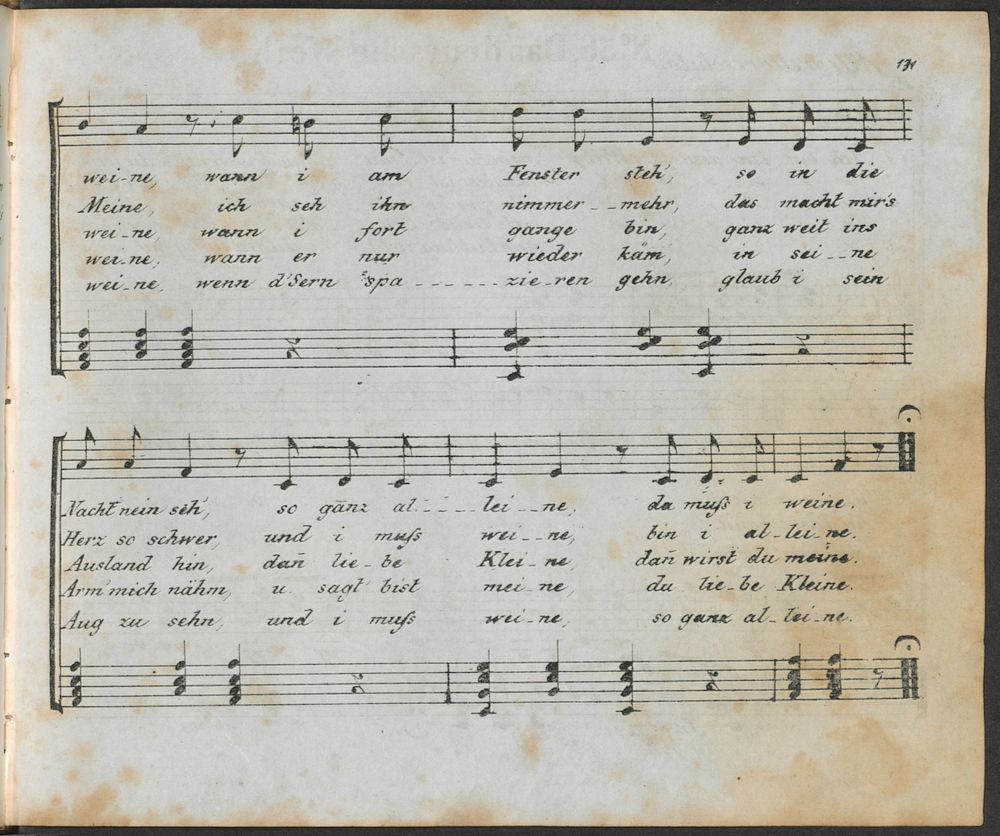 131
wei-ne, wann i am Fenster steh', so in die
Meine, ich seh ihn nimmer--mehr, das macht mir's
wei-ne, wann i fort gange bin, ganz weit ins
wei-ne, wann er nur wieder käm, in sei--ne
wei-ne, wenn d'Sern spa------zie-ren gehn, glaub i sein
Nacht nein seh', so ganz al----lei--ne, da muſs i weine.
Herz so schwer, und i muſs wei--ne, bin i al-lei-ne.
Ausland hin, dan̄ lie-be Klei-ne, dan̄ wirst du meine.
Arm mich nähm, u. sagt' bist mei-ne, du lie-be Kleine.
Aug zu sehn, und i muſs wei-ne, so ganz al-lei-ne.